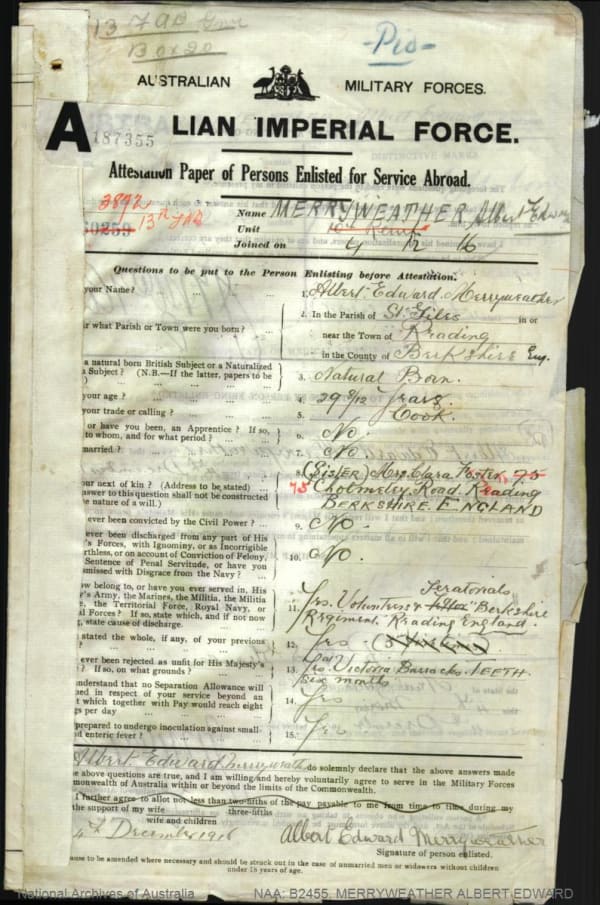 13 FAB
Box 20
Pis
AUSTRALIAN MILITARY FORCES.
A 187355 LIAN IMPERIAL FORCE.
Attestation Paper of Persons Enlisted for Service Abroad.
3892
13th FAB
50259
Name MERRYWEATHER Albert Edw
Unit
Joined on 4 12 16
Questions to be put to the Person Enlisting before Attestation.
your Name? ... ... 1. Albert Edward Merryweather
2. In the Parish of St. Giles in or
r what Parish or Town were you born? near the Town of Reading
in the County of Berkshire Eng.
a natural born British Subject or a Naturalized
Subject? (N.B.—If the latter, papers to be 3. Natural Born.
) ... ...
your age? ... ... 4. 29 8/12 Years
your trade or calling? ... 5. Cook.
or have you been, an Apprentice? If so,
to whom, and for what period? ... 6. No.
married? ... 7. No.
8. (SISTER) Mrs Clara 75
our next of kin? (Address to be stated) ... 75 Cholmeley Road Reading
answer to this question shall not be constructed
e nature of a will.) BERKSHIRE. ENGLAND
ever been convicted by the Civil Power? ... 9. No.
ever been discharged from any part of His
's Forces, with Ignominy, or as Incorrigible
rthless, or on account of Conviction of Felony, 10. No.
Sentence of Penal Servitude, or have you
smissed with Disgrace from the Navy? ...
ow belong to, or have you ever served in, His
y's Army, the Marines, the Militia, the Militia
e, the Territorial Force, Royal Navy, or 11. Yes. Volunteers & Berkshire
l Forces? If so, state which, and if not now Regiment. Reading England.
g, state cause of discharge.
stated the whole, if any, of your previous
? ... 12. Yes
ever been rejected as unfit for His Majesty's
? If so, on what grounds? 13. Yes. Victoria Barracks. TEETH.
six months
nderstand that no Separation Allowance will
ed in respect of your service beyond an 14. Yes
t which together with Pay would reach eight
gs per day
prepared to undergo inoculation against small-
nd enteric fever? ... 15. Yes
Albert Edward Merryweather do solemnly declare that the above answers made
e above questions are true, and I am willing and hereby voluntarily agree to serve in the Military Forces
monwealth of Australia within or beyond the limits of the Commonwealth.
I further agree to allot not less than two-fifths of the pay payable to me from time to time during my
the support of my wife three-fifths
wife and children
4th December 1916 Albert Edward Merryweather
Signature of person enlisted.
ause to be amended where necessary and should be struck out in the case of unmarried men or widowers without children
under 18 years of age.
National Archives of Australia NAA: B2455, MERRYWEATHER ALBERT EDWARD